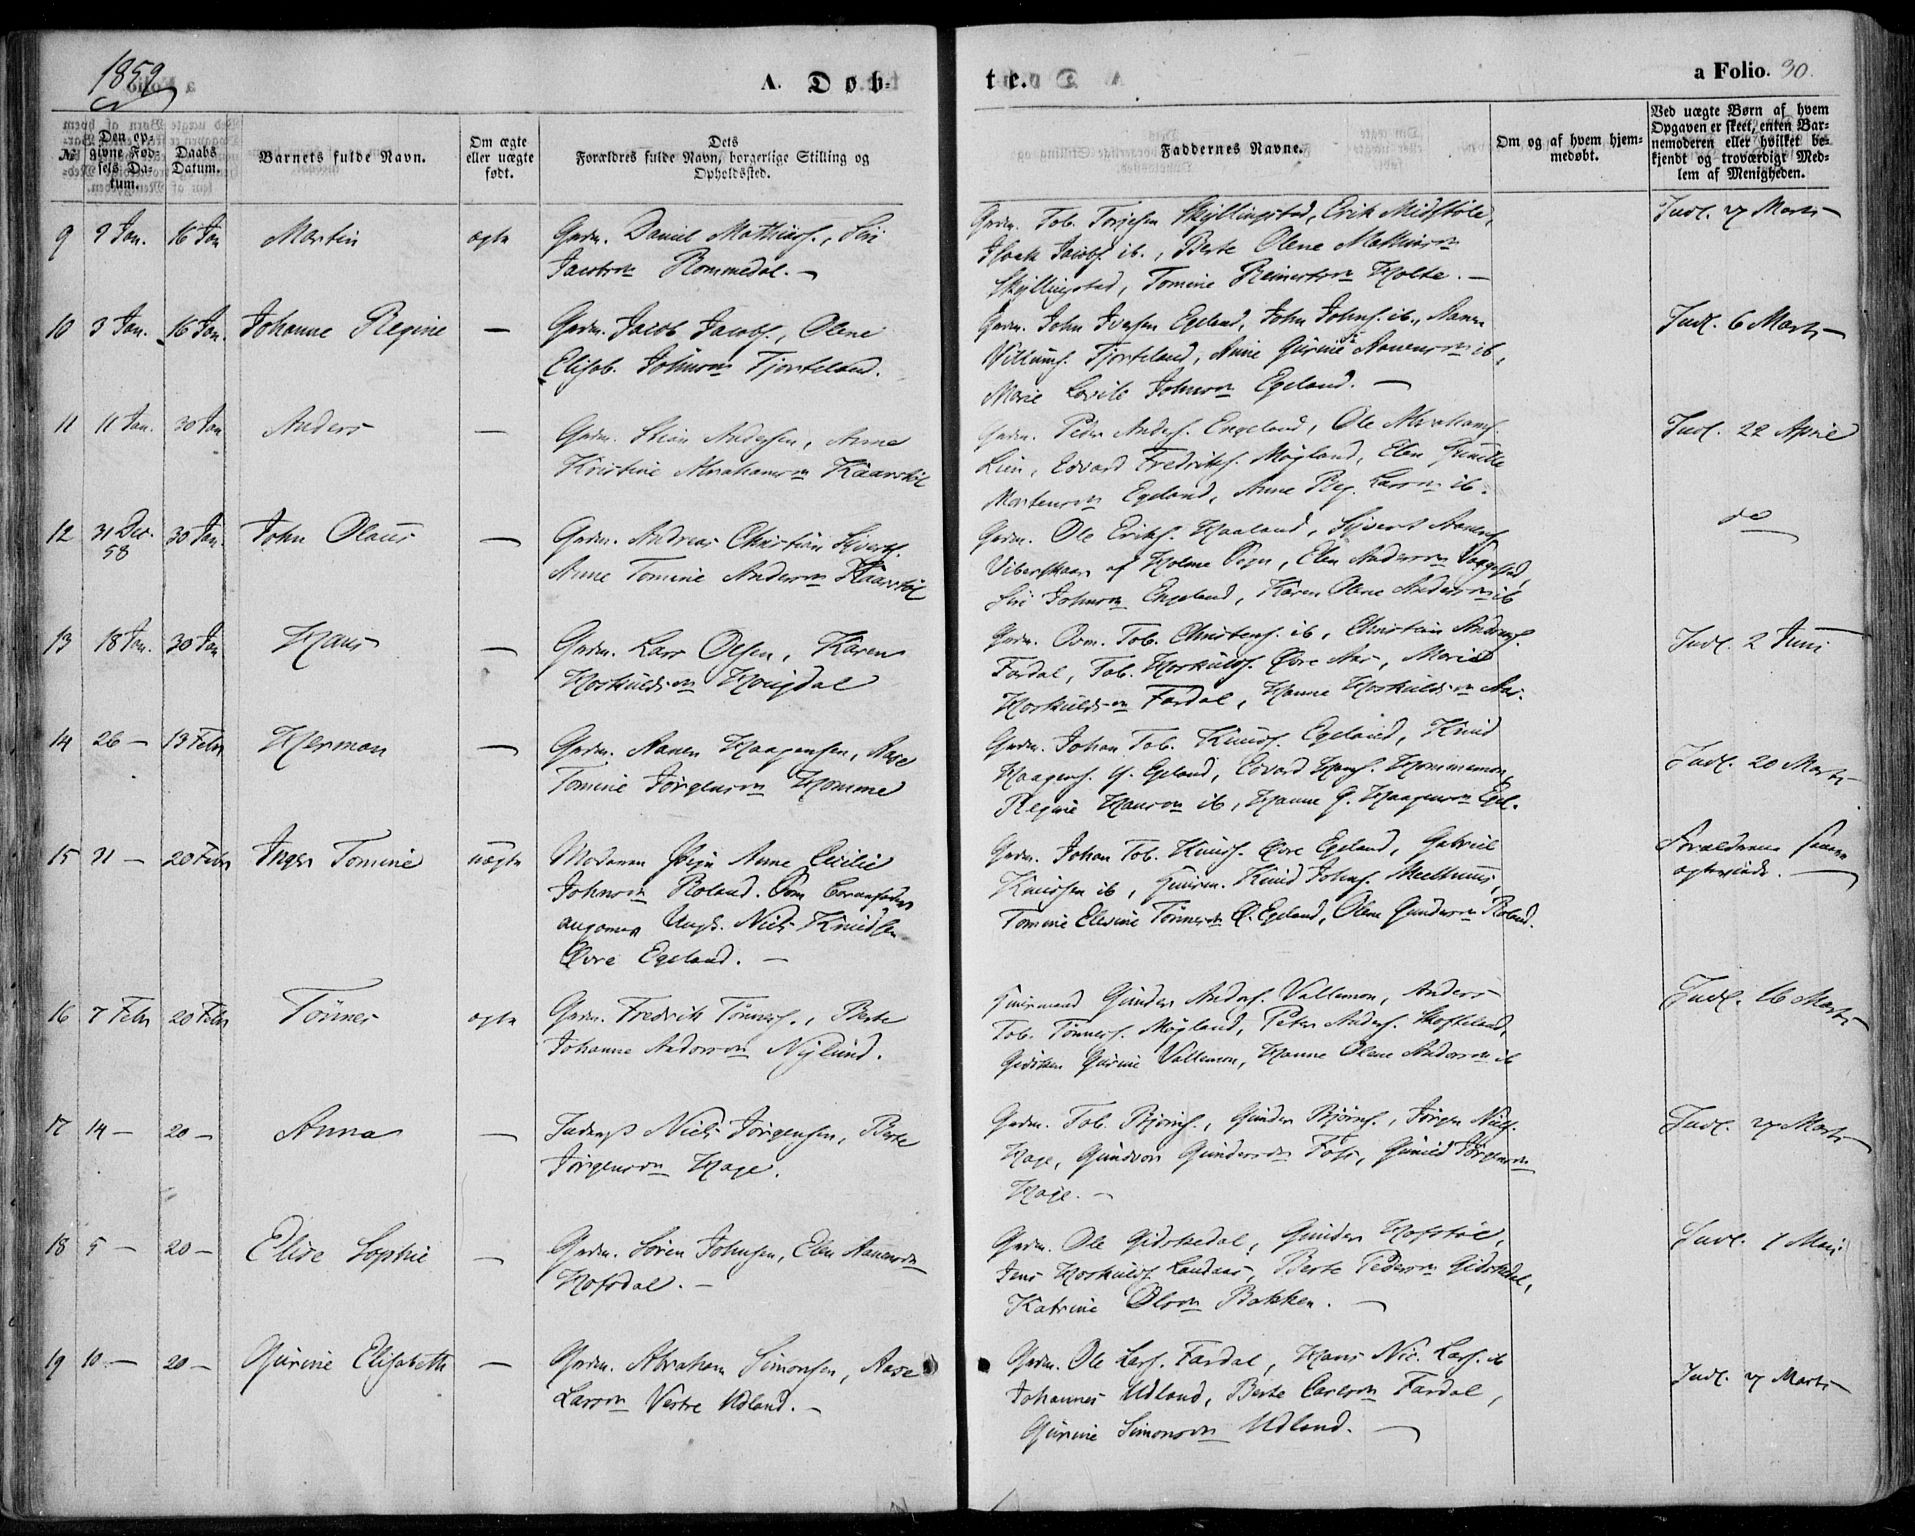 1859
A. Døb-
te.
a Folio. 30.
№
Den op-
givne Fød-
sels Da-
tum.
Daabs
Datum.
Barnets fulde Navn.
Om ægte
eller uægte
født.
Dets
Forældres fulde Navn, borgerlige Stilling og
Opholdssted.
Faddernes Navne.
Om og af hvem hjem-
medøbt.
Ved uægte Børn af hvem
Opgaven er skeet, enten Bar-
nemoderen eller hvilket be-
kjendt og troværdigt Med-
lem af Menigheden.
9 9 Jan. 16 Jan Martin ægte
Grdm. Daniel Mathias., Siri
Jacobsen Rommedal. —
Grdm. Tob. Torjesen Skyllingstad, Erik Midtbøle,
Jacobs ib., Berte Olene Mathias
Skyllingstad, Tomine Reinerts Holte. —
Indl. 27 Marts
10 3 Jan. 16 Jan. Johanne Regine —
Grdm. Jacob Jacobs., Olene
Elisab. Johns Tjorteland.
Grdm. John Iversen Egeland, John Johns. ib., Aanen
Villums. Tjorteland, Anne Gurine Aanens ib,
Marie Johns Egeland. —
Indl. 6 Marts
11 11 Jan. 30 Jan Anders —
Grdm. Stian Andersen, Anne
Kristine Abrahams Kaarstøl
Grdm. Peder Anders. Engeland, Ole Abrahams.
Lien, Edvard Fredriks. Møgland, Elen Gunille
Mortens Egeland, Anne Reg. Lars ib.
Indl. 22 April
12 31 Dec. 58 30 Jan. John Olaus —
Grdm. Andreas Christian Syverts.
Anne Tomine Anders Kaarstøl
Grdm. Ole Eriks. Haaland, Syvert Aanens.
Viberskaar af Holme Sogn, Elen Anders
Siri Johns Engeland, Karen Olene Anders ib
do
13 18 Jan. 30 Jan Hans —
Grdm. Lars Olsen, Karen
Horkulds Hougdal
Grdm. Tob. Christens. ib, Christian Anders.
Fardal, Tob. Horkulds. Øvre Aas, Maria
Horkulds Fardal, Hanne Horkulds Aas.
Indl. 2 Juni
14 26 — 13 Febr Herman —
Grdm. Aanen Haagensen, Aase
Tomine Jørgens Homme
Grdm. Johan Tob. Knuds. Egeland, Knud
Haagens. Egeland, Edvard Hans. Hommemon,
Regine Hans ib, Hanne G. Haagens Egel.
Indl. 20 Marts
15 31 — 20 Febr Inger Tomine uægte
Moderen Pige Anne Cecilie
Johns Roland. Som Barnefader
angives Ungk. Niels Knudsen
Øvre Egeland. —
Grdm. Johan Tob. Knuds. Øvre Egeland, Gabriel
Knudsen ib, Knud Johns. Meelhuus,
Tomine Elevine Tønnes Ø. Egeland, Olene Gunders Roland.
Forældrene
16 7 Febr 20 Febr Tønnes ægte
Grdm. Fredrik Tønnes., Berte
Johanne Anders Nylund.
Gunder Anders. Vallemon, Anders
Tob. Tønnes. Møgland, Peter Anders. Skofteland,
Gurine Vallemon, Hanne Olene Anders ib
Indl. 16 Marts
17 14 — 20 — Anna —
Niels Jørgensen, Berte
Jørgens Hage.
Grdm. Tob. Bjørns., Gunder Bjørns., Jørgen Niels.
Hage, Gunvor Gunders Foss, Gunild Jørgens
Hage. —
Indl. 27 Marts
18 5 — 20 — Elise Sophie —
Grdm. Søren Johnsen, Elen Aanens
Hofsdal. —
Grdm. Ole Gidskedal, Gunder Hofstøl,
Jens Horkulds. Landaas, Berte Peders Gidskedal,
Katrine Ols Bakken. —
Indl. 1 Mai
19 10 — 20 — Gurine Elisabeth —
Grdm. Abraham Simonsen, Aase
Lars Vestre Udland. —
Grdm. Ole Lars. Fardal, Hans Nic. Lars. ib
Johannes Udland, Berte Carls Fardal,
Gurine Simons Udland. —
Indl. 27 Marts